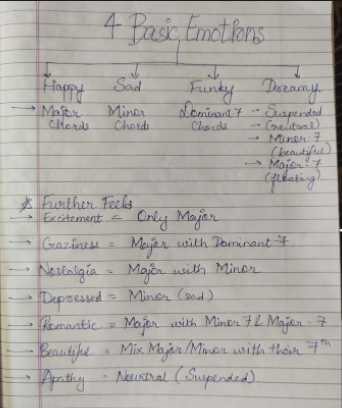 4 Basic Emotions
Happy Sad Funky Dreamy
→ Major Minor Dominant-7 → Suspended
Chords Chords Chords → (neutral)
→ Minor-7
(beautiful)
→ Major-7
(floating)
Further Feels
→ Excitement = Only Major
→ Craziness = Major with Dominant-7
→ Nostalgia = Major with Minor
→ Depressed = Minor (sad)
→ Romantic = Major with Minor 7 & Major-7
→ Beautiful = Mix Major/Minor with their 7th
→ Apathy = Neutral (Suspended).